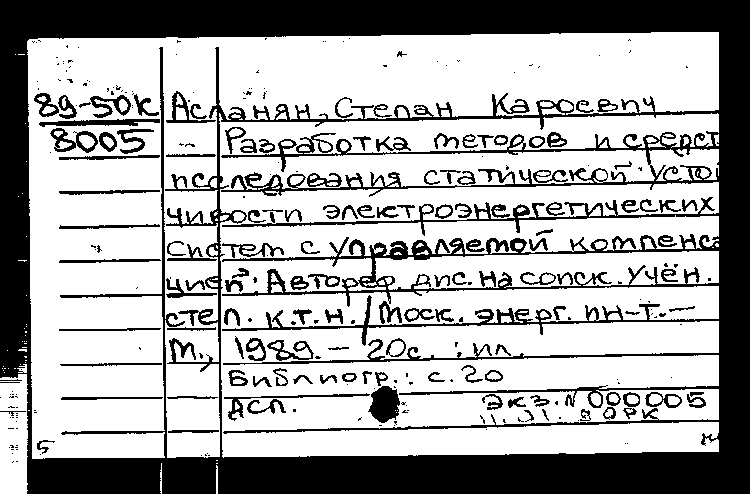 89-50К Асланян, Степан Кароевич
8005 — Разработка методов и средст
исследования статической усто
чивости электроэнергетических
систем с управляемой компенса
цией: Автореф. дис. на соиск. учён.
степ. к.т.н. / Моск. энерг. ин-т. —
М., 1989. — 20с. : ил.
Библиогр.: с. 20
АСП. Экз. N 000005
5